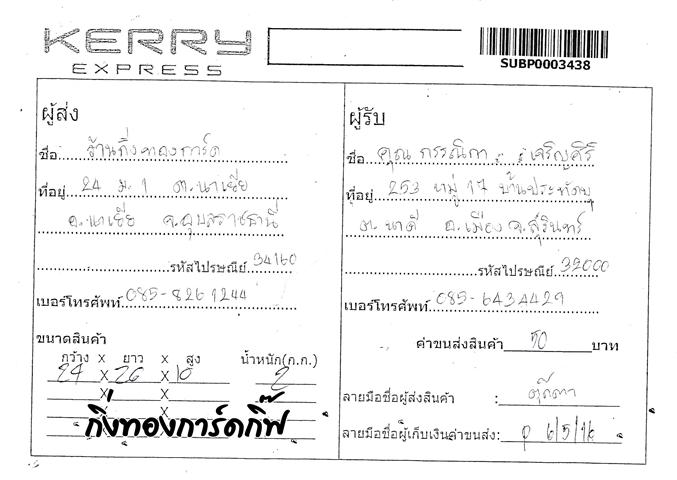 KERRY
EXPRESS
SUBP0003438
ผู้ส่ง
ชื่อ ร้านกิ่งทองการ์ด
ที่อยู่ 24 ม.1 ต.นาเยีย
อ.นาเยีย จ.อุบลราชธานี
รหัสไปรษณีย์ 34160
เบอร์โทรศัพท์ 085-8261244
ขนาดสินค้า
กว้าง X ยาว X สูง น้ำหนัก(ก.ก.)
24 X 26 X 10 2
X X
X X
กิ่งทองการ์ดกิ๊ฟ
ผู้รับ
ชื่อ คุณ กรรณิกา เจริญศิริ
ที่อยู่ 253 หมู่ 17 บ้านประทัดบุ
ต.นาดี อ.เมือง จ.สุรินทร์
รหัสไปรษณีย์ 32000
เบอร์โทรศัพท์ 085-6434429
ค่าขนส่งสินค้า 50 บาท
ลายมือชื่อผู้ส่งสินค้า : ตุ๊กตา
ลายมือชื่อผู้เก็บเงินค่าขนส่ง: 6/5/16